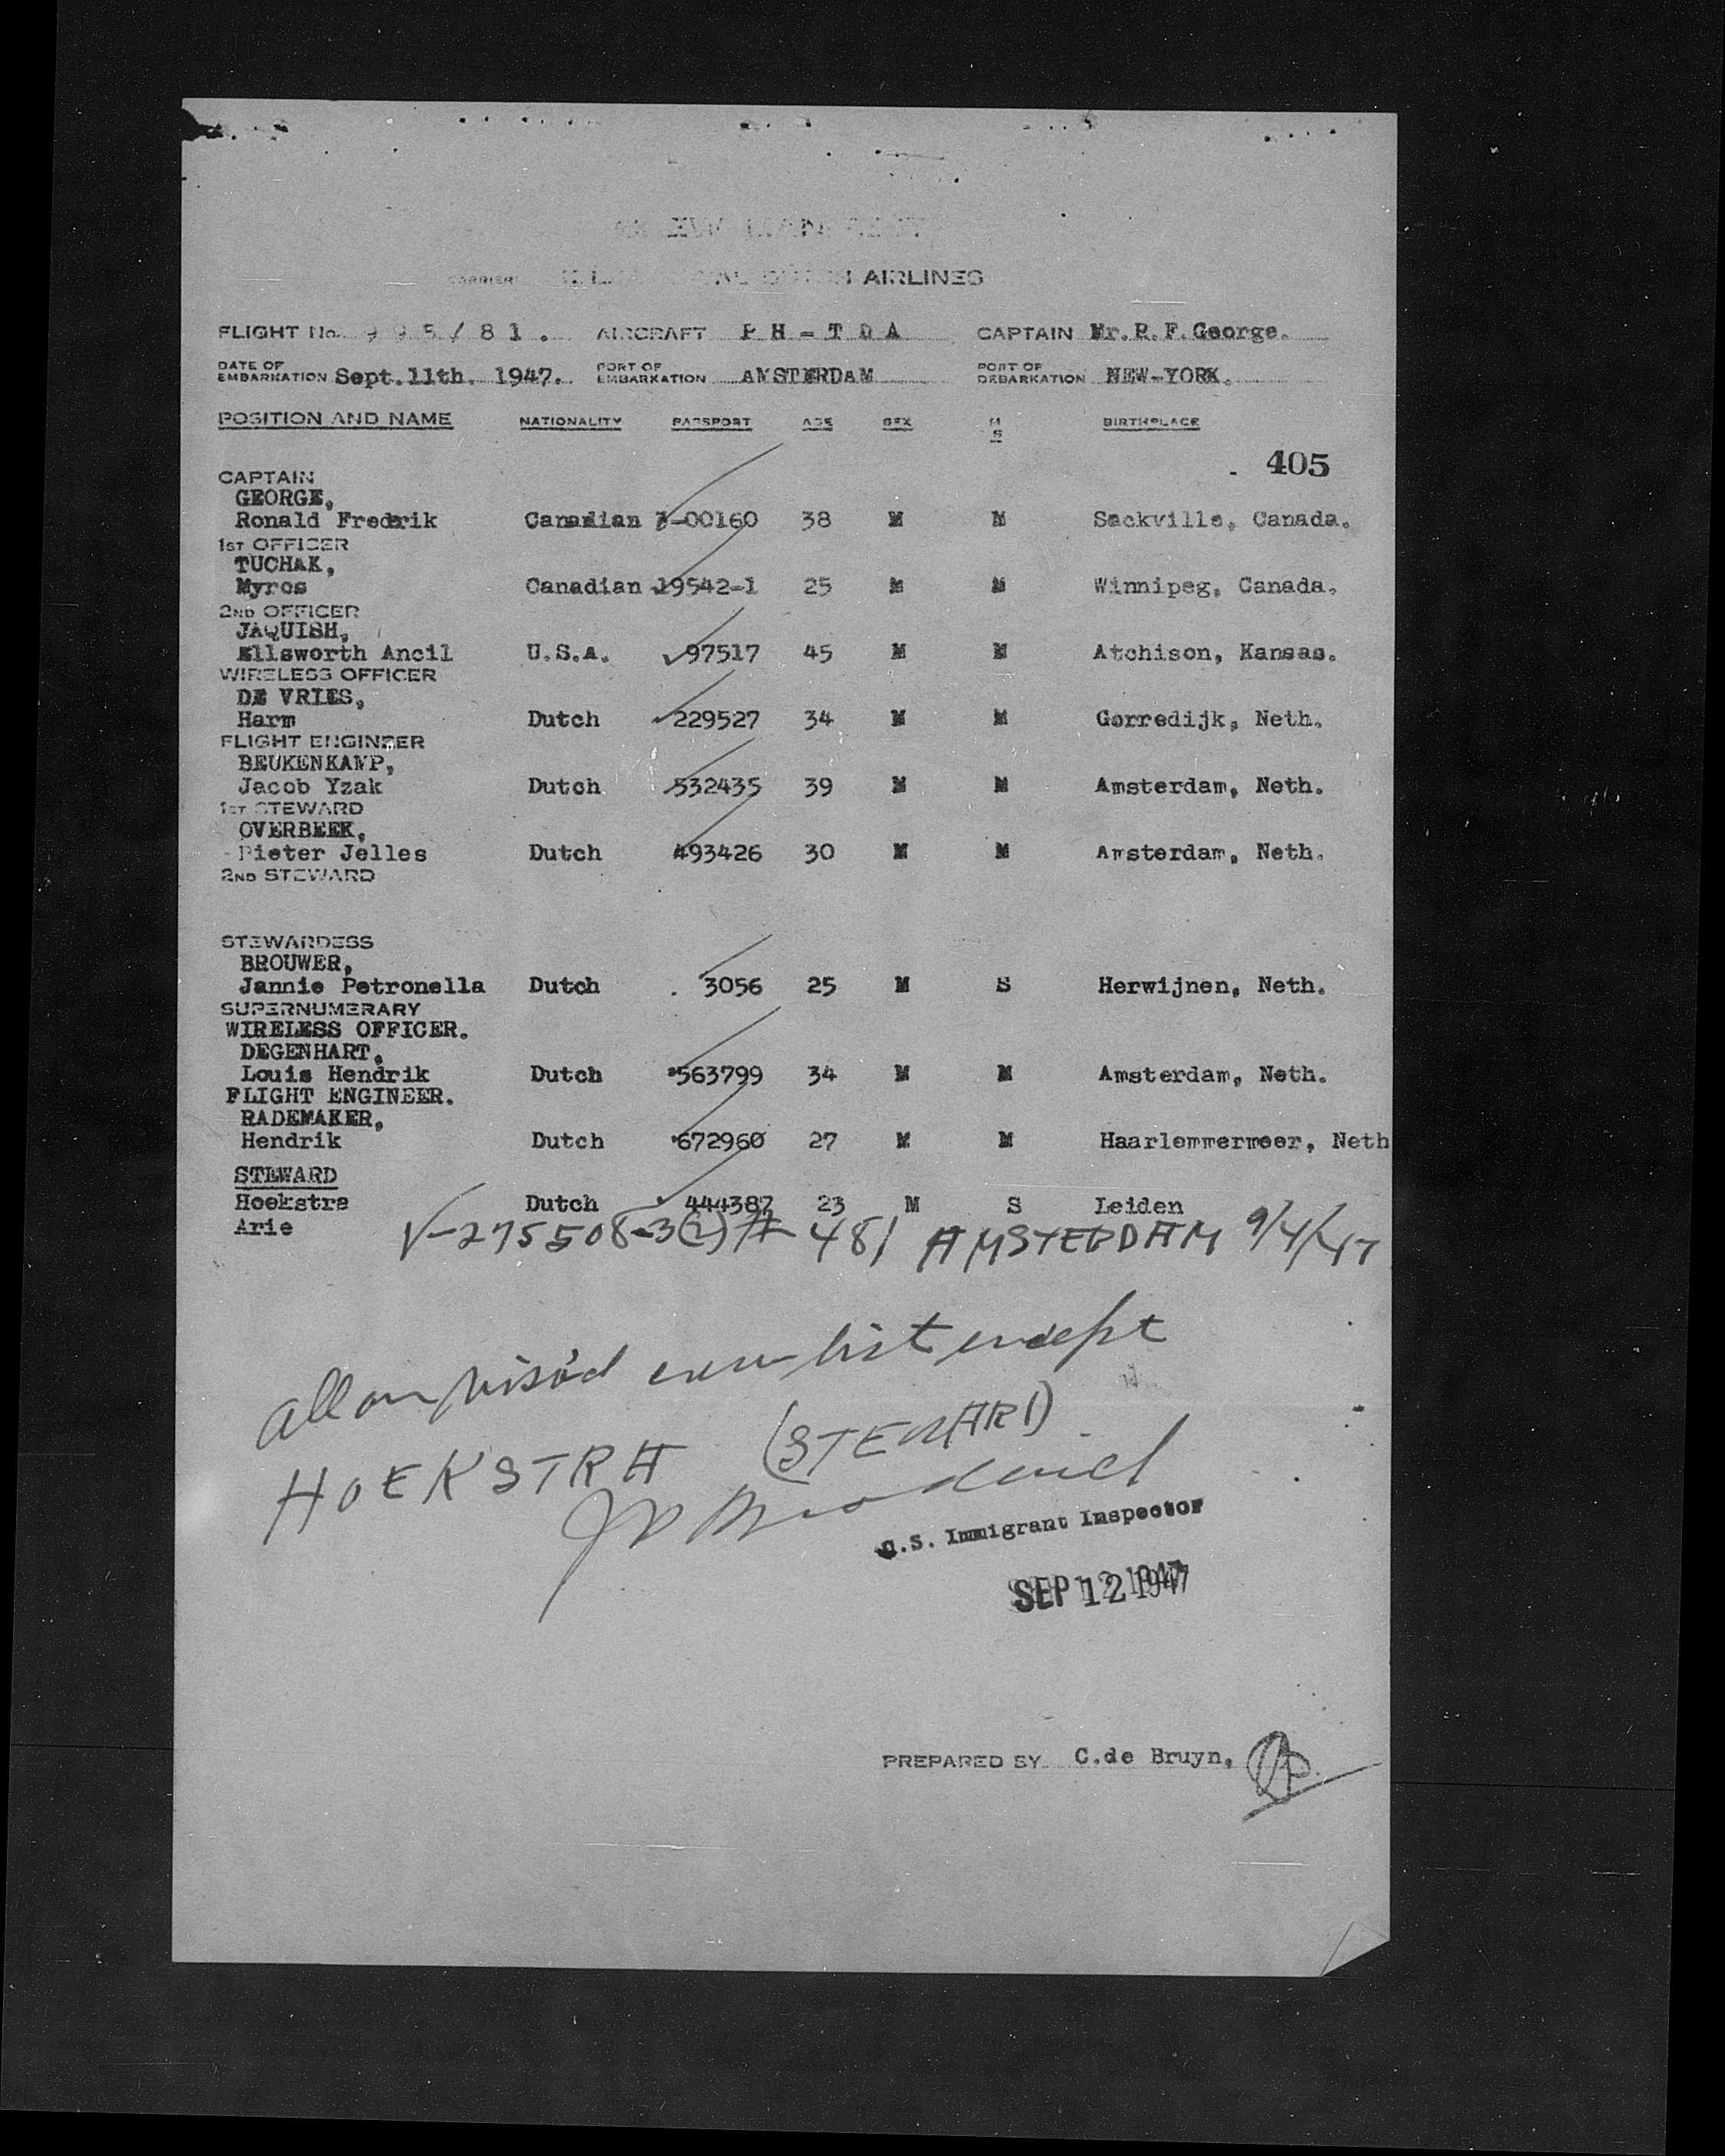 CREW MANIFEST
CARRIER: K.L.M. ROYAL DUTCH AIRLINES
FLIGHT No. 995/81. AIRCRAFT PH-TDA CAPTAIN Mr.R.F.George.
DATE OF EMBARKATION Sept.11th. 1947. PORT OF EMBARKATION AMSTERDAM PORT OF DEBARKATION NEW-YORK.
POSITION AND NAME NATIONALITY PASSPORT AGE SEX M S BIRTHPLACE
405
CAPTAIN
GEORGE,
Ronald Fredrik Canadian 3-00160 38 M M Sackville, Canada.
1ST OFFICER
TUCHAK,
Myros Canadian 19542-1 25 M M Winnipeg, Canada.
2ND OFFICER
JAQUISH,
Ellsworth Ancil U.S.A. 97517 45 M M Atchison, Kansas.
WIRELESS OFFICER
DE VRIES,
Harm Dutch 229527 34 M M Gorredijk, Neth.
FLIGHT ENGINEER
BEUKENKAMP,
Jacob Yzak Dutch 532435 39 M M Amsterdam, Neth.
1ST STEWARD
OVERBEEK,
Pieter Jelles Dutch 493426 30 M M Amsterdam, Neth.
2ND STEWARD
STEWARDESS
BROUWER,
Jannie Petronella Dutch 3056 25 M S Herwijnen, Neth.
SUPERNUMERARY
WIRELESS OFFICER.
DEGENHART,
Louis Hendrik Dutch 563799 34 M M Amsterdam, Neth.
FLIGHT ENGINEER.
RADEMAKER,
Hendrik Dutch 672960 27 M M Haarlemmermeer, Neth
STEWARD
Hoekstra Dutch 444387 23 M S Leiden
Arie
V-275508-3(2) # 481 AMSTERDAM 9/4/47
All on visa'd crew list except
HOEKSTRA (STEWARD)
U.S. Immigrant Inspector
SEP 12 1947
PREPARED BY C.de Bruyn.